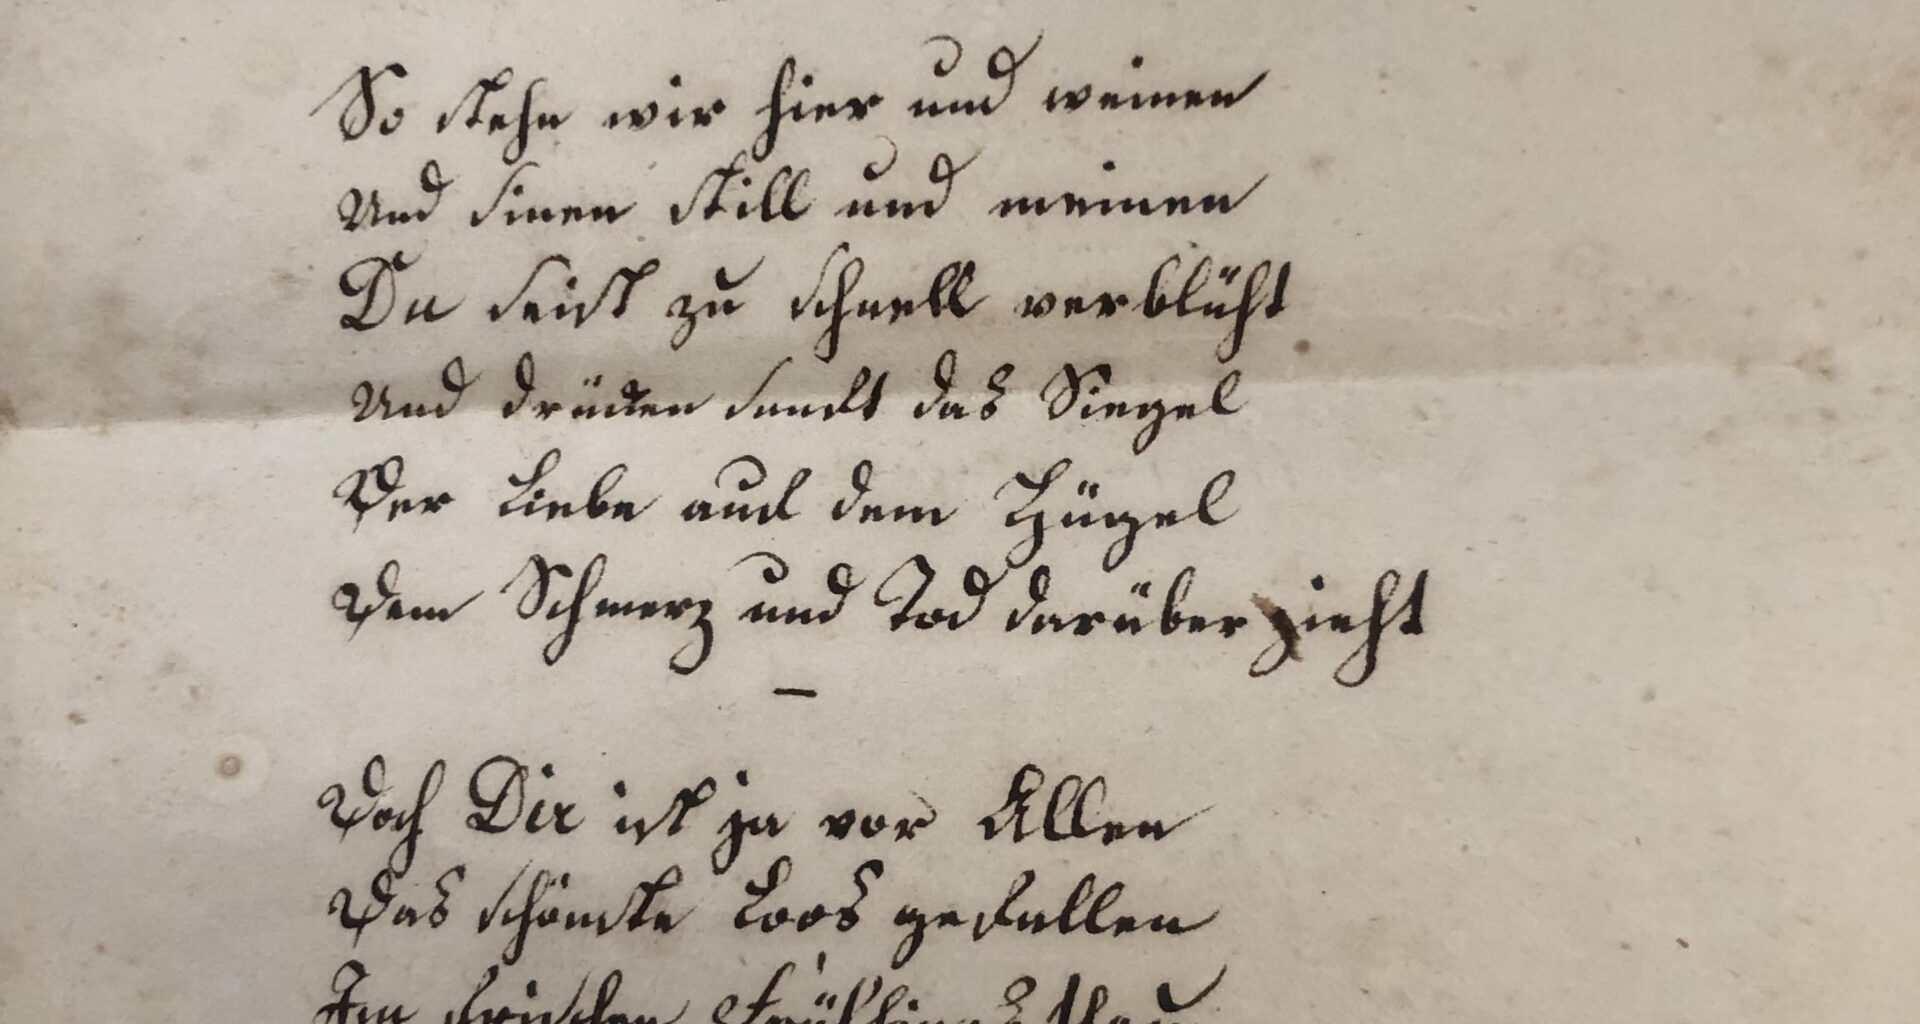 So stehn wir hier und weinen
Und sinen still und meinen
Du seist zu schnell verblüht
Und drücken sanft das Siegel
Der Liebe auf dem Hügel
Dem Schmerz und Tod darüber zieht
—
Doch Dir ist ja vor Allen
Das schönste Loos gefallen
Im frischen